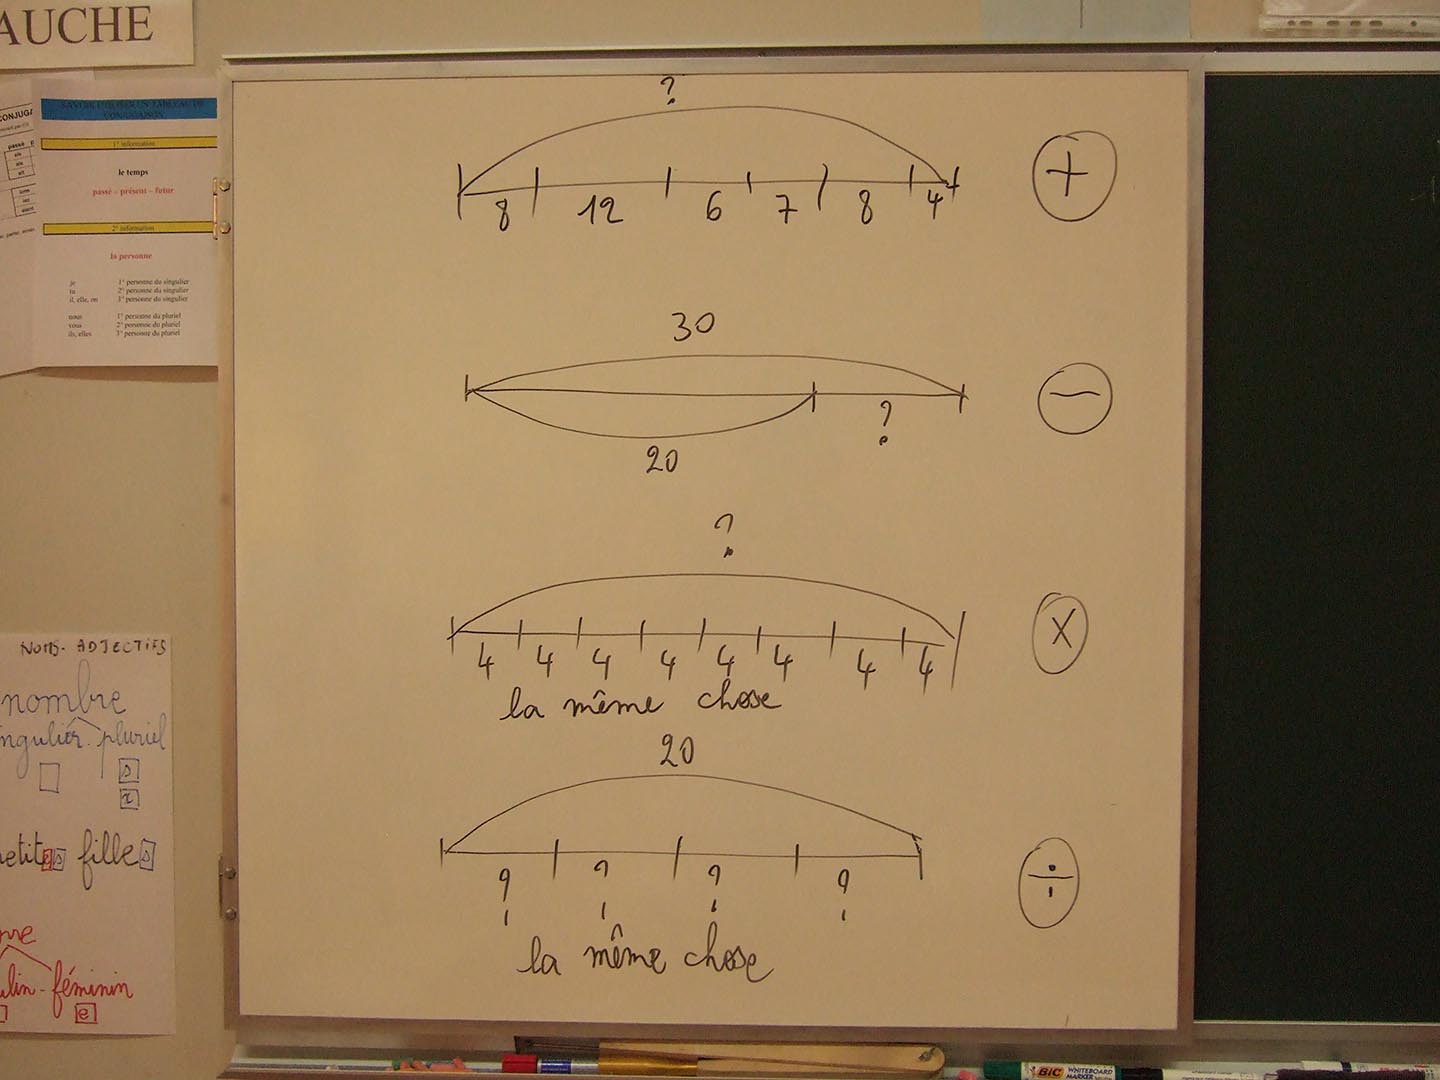 AUCHE
CONJUGA
passé
SAVOIR UTILISER UN TABLEAU DE
CONJUGAISON
1° information
le temps
passé – présent – futur
2° information
la personne
je 1° personne du singulier
tu 2° personne du singulier
il, elle, on 3° personne du singulier
nous 1° personne du pluriel
vous 2° personne du pluriel
ils, elles 3° personne du pluriel
?
8 12 6 7 8 4
+
30
20 ?
−
?
4 4 4 4 4 4 4 4
la même chose
×
20
? ? ? ?
la même chose
÷
NOMS - ADJECTIFS
nombre
ngulier - pluriel
s
x
petites filles
nre
ulin - féminin
e
BIC WHITEBOARD
MARKER